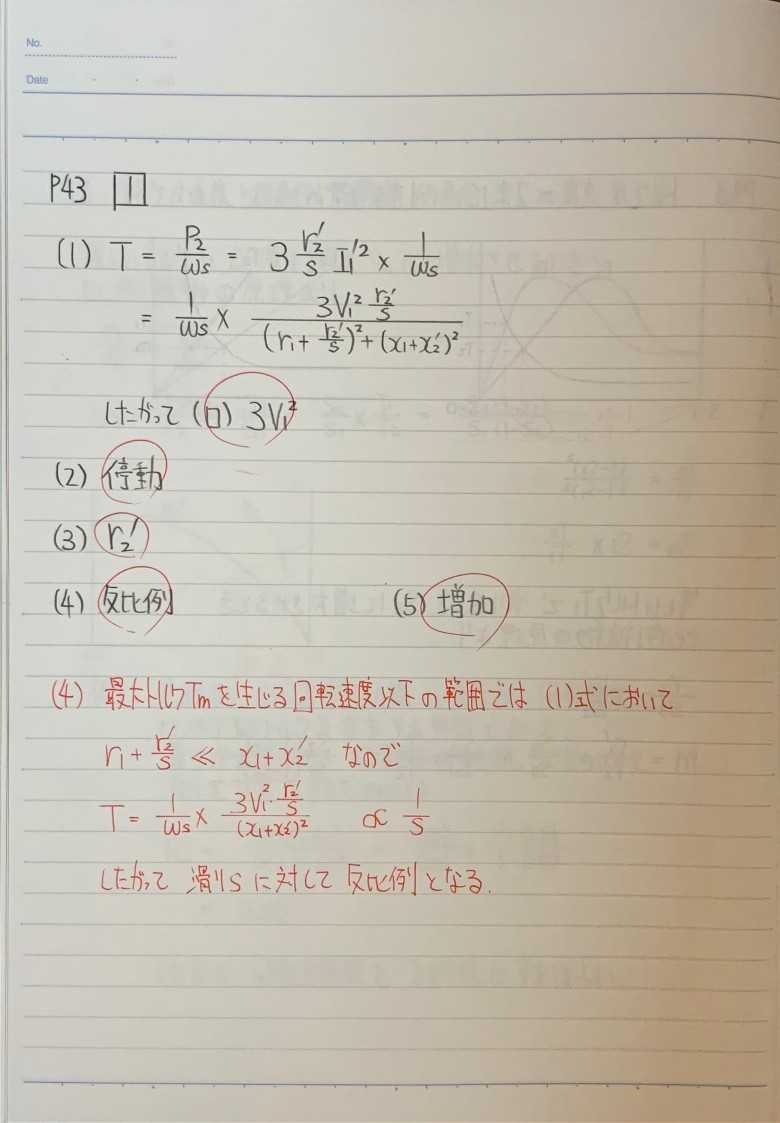 No.
Date
P43 1
(1) T = P₂/ωs = 3 r₂′/s I₁′² × 1/ωs
= 1/ωs × 3V₁² r₂′/s / (r₁ + r₂′/s)² + (x₁+x₂′)²
したがって (ロ) 3V₁²
(2) 停動
(3) r₂′
(4) 反比例 (5) 増加
(4) 最大トルクTmを生じる回転速度以下の範囲では (1)式において
r₁ + r₂′/s ≪ x₁+x₂′ なので
T = 1/ωs × 3V₁²· r₂′/s / (x₁+x₂′)² ∝ 1/s
したがって 滑りs に対して 反比例となる.